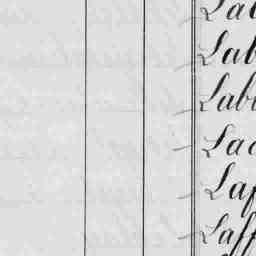 Lab
Lab
Lab
Lac
Laf
Laff